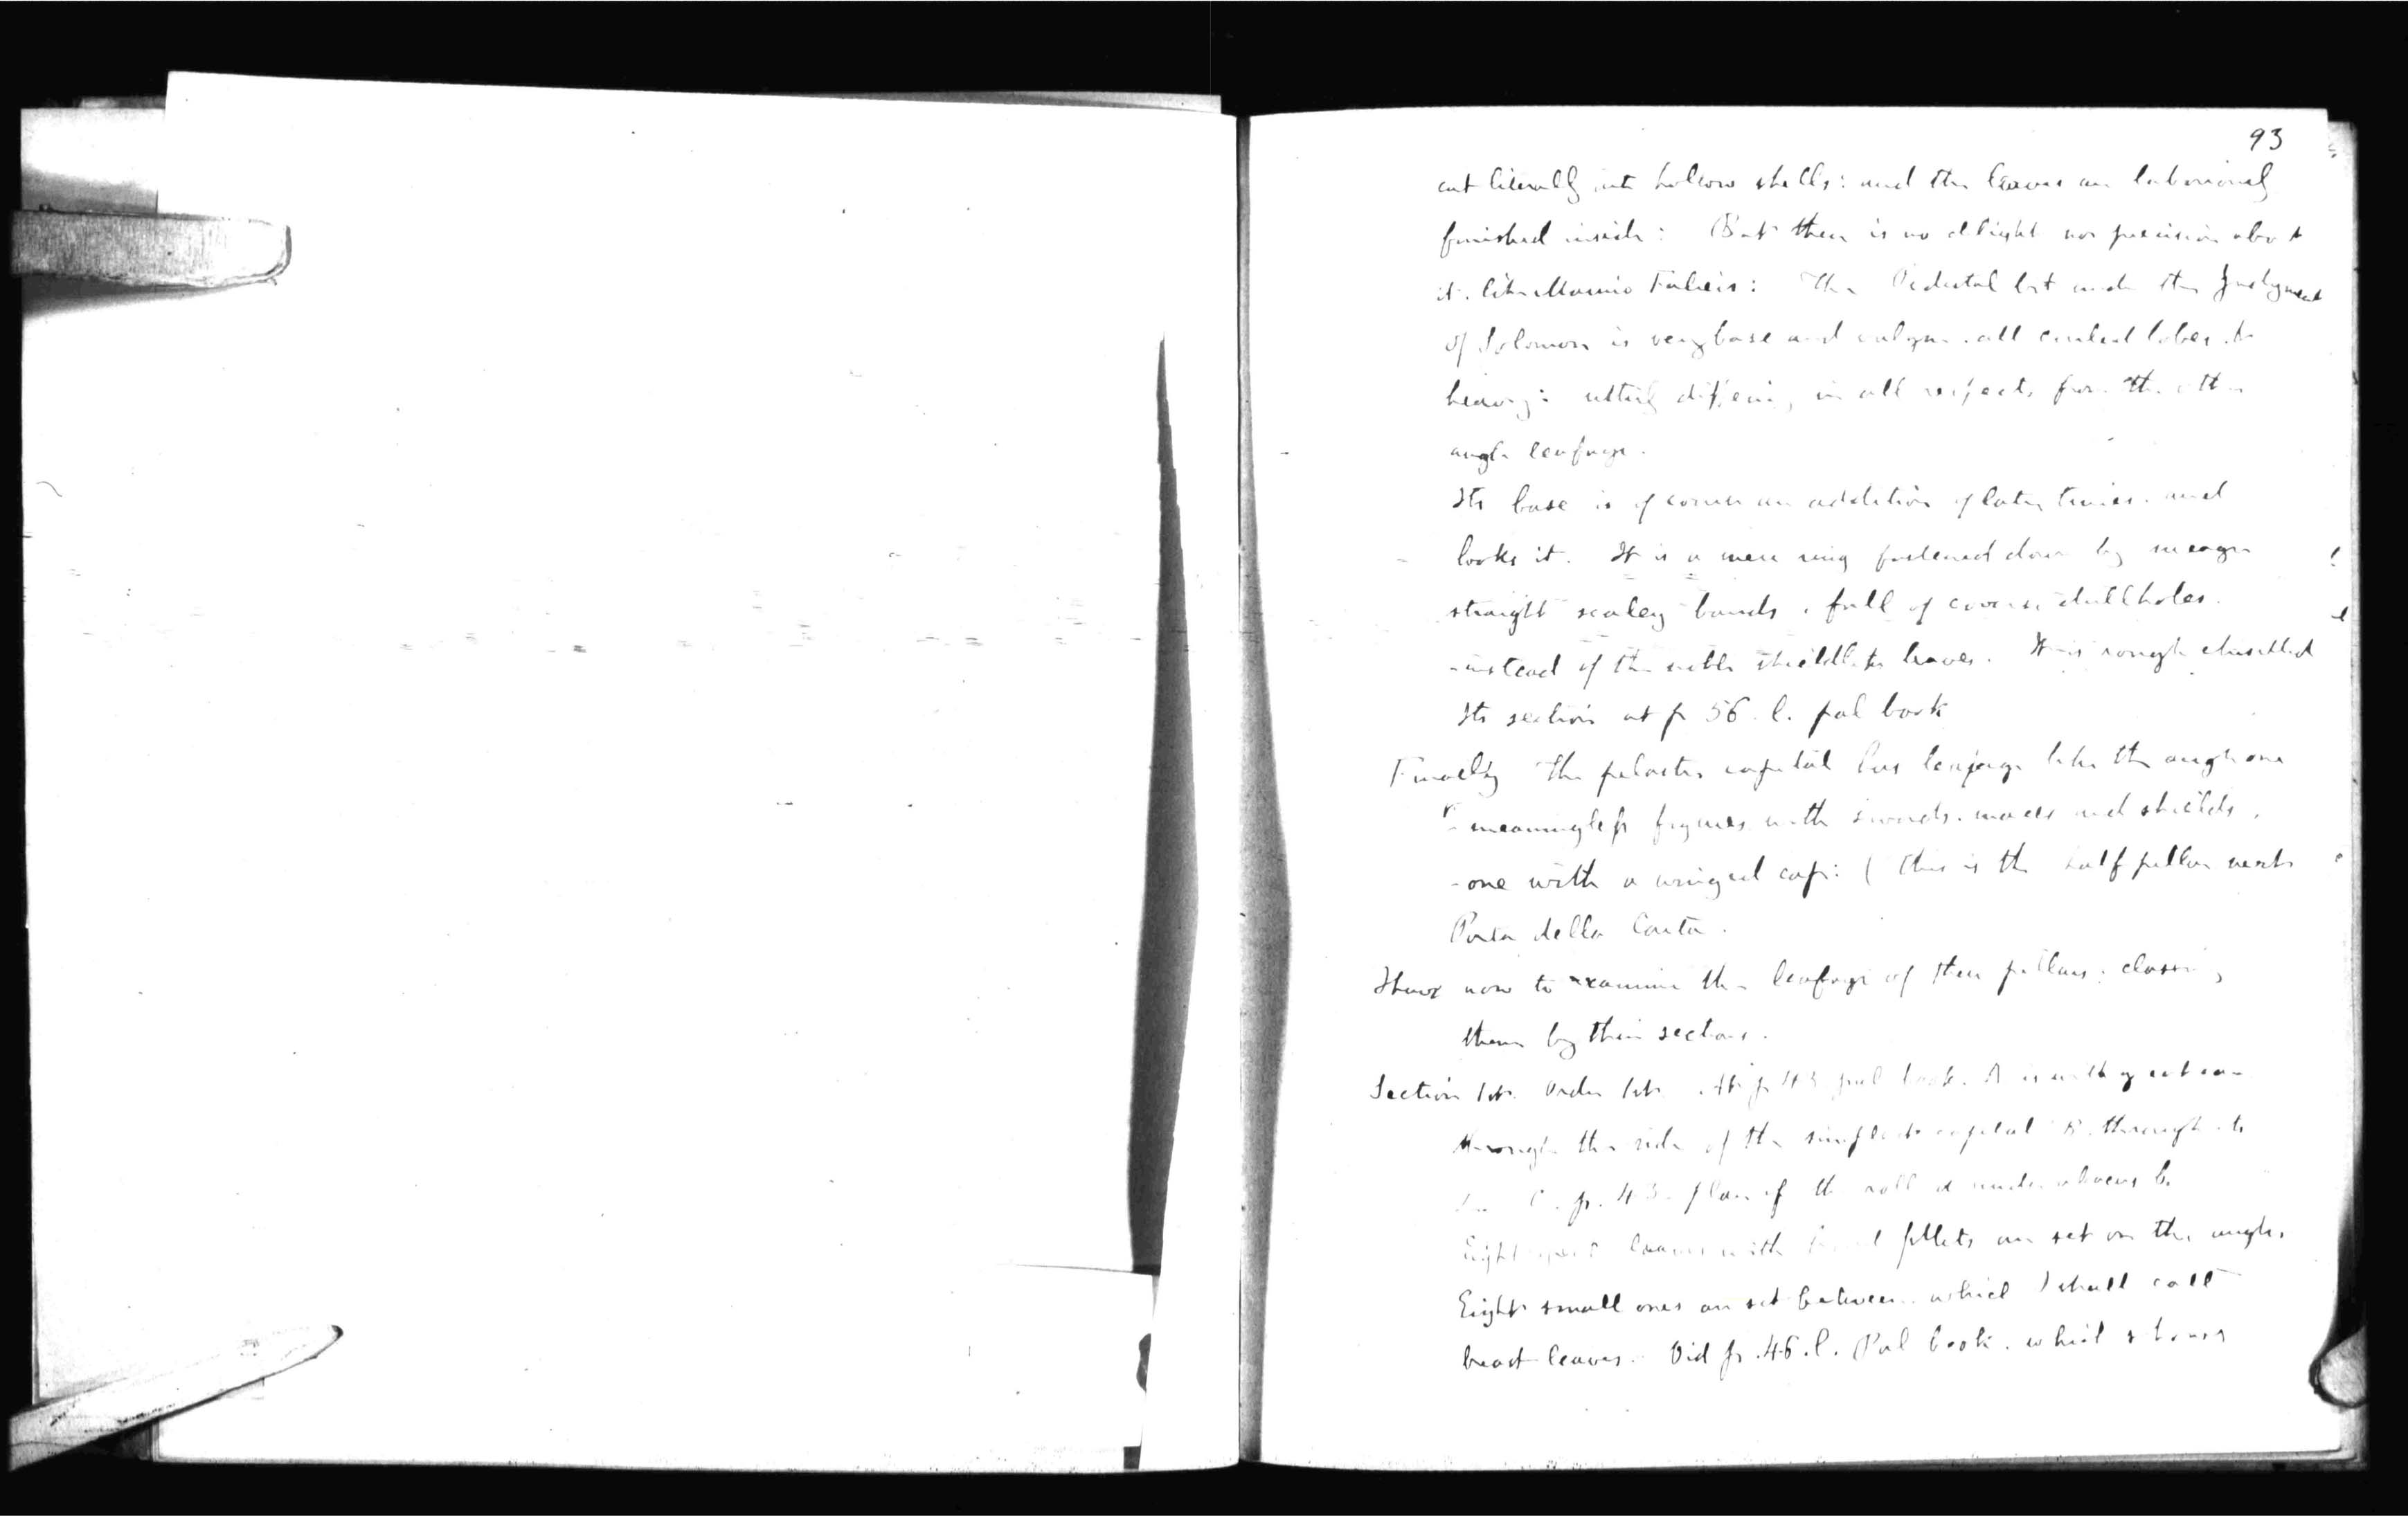 93
cut literally into hollow shells: and the leaves are laboriously
finished inside: But there is no delight nor precision about
it. like Marino Faliers: The Pedestal bit under the Judgment
of Solomon is very base and vulgar. all curled lobes. &
heavy: utterly differing in all respects from the other
angle leafage.
Its base is of course an addition of later times. and
looks it. It is a mere ring fastened down by meagre
straight scaley bands, full of coarse drillholes.
- instead of the noble shieldlike leaves. It is rough chiselled
Its section at p 56. l. pal book
Finally The pilaster capital has leafage like the angle one
meaningless figures with swords. maces and shields,
- one with a winged cap: (this is the half pillar next
Porta della Carta.
I have now to examine the leafage of these pillars. classing
them by their sections.
Section 1st. Order 1st. At p 43 pal book. A is with
through the side of the simplest capital B. through its
C. p. 43. plan of the roll a under abacus b.
Eight leaves with fillets are set on the angles.
Eight small ones are set between. which I shall call
breast leaves. Vid p. 46. l. Pal book. which shows